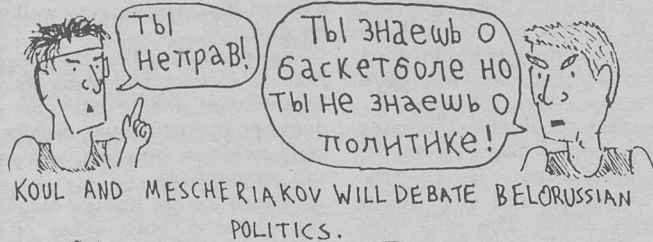 ТЫ
НЕПРАВ!
ТЫ ЗНАЕШЬ О
БАСКЕТБОЛЕ НО
ТЫ НЕ ЗНАЕШЬ О
ПОЛИТИКЕ!
KOUL AND MESCHERIAKOV WILL DEBATE BELORUSSIAN
POLITICS.